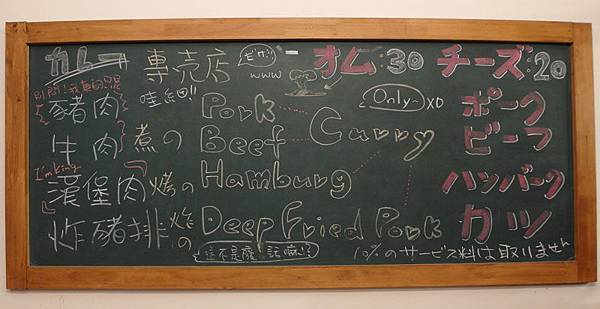 カレー 専売店 だけど!! オム:30 チーズ:20
www
別問!我真的只是 哇細
豬肉 Pork Only~ XD ポーク
牛肉 煮の Beef Curry ビーフ
I'm King
漢堡肉 烤の Hamburg ハンバーク
炸豬排 炸の Deep Fried Pork カツ
這不是廢話嘛!? 10%のサービス料は取りません